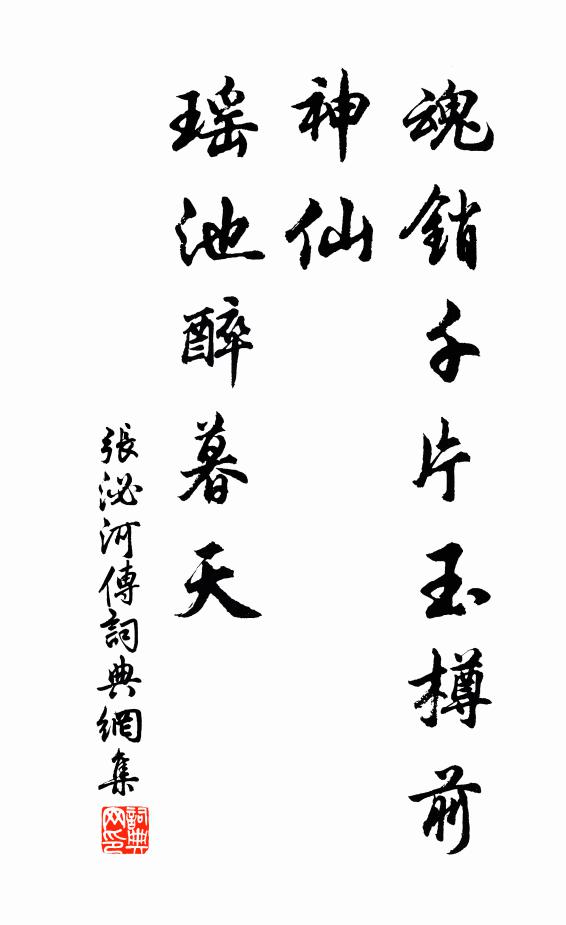 魂銷千片玉樽前
神仙
瑶池醉暮天
張泌河傳詞典網集
詞典网印